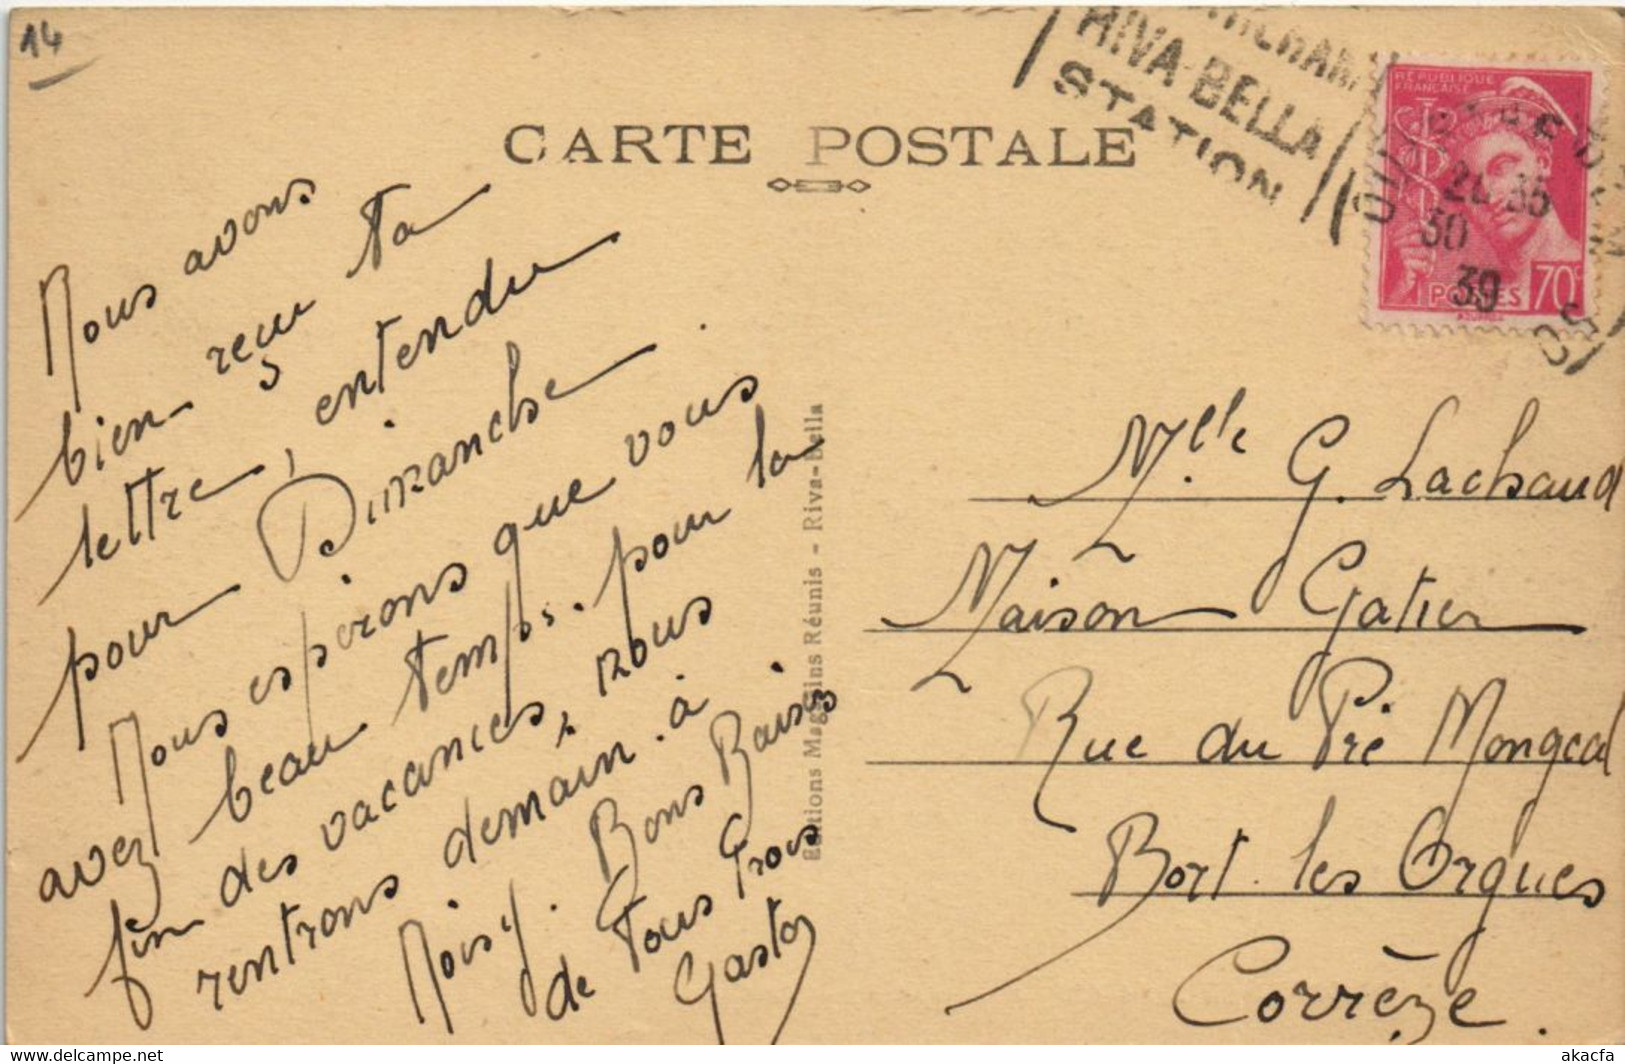 14
CARTE POSTALE
RIVA-BELLA
STATION
RÉPUBLIQUE
FRANÇAISE
30
39
POSTES
70c
Nous avons
bien reçu ta
lettre, entendu
pour Dimanche
Nous espérons que vous
avez beau temps. pour la
fin des vacances, nous
rentrons demain. à
Noisy. Bons Baisers
de Tous Trois
Gaston
Editions Magasins Réunis - Riva-Bella
Mlle G. Lachaud
Maison Gatier
Rue du Pré Mongeal
Bort les Orgues
Corrèze.
www.delcampe.net
akacfa